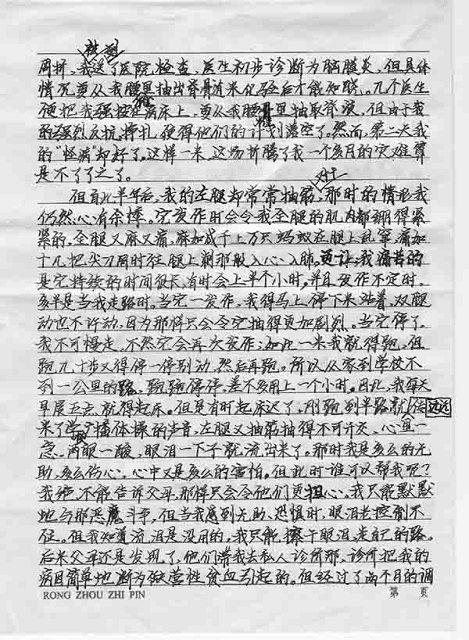 周折,我送了医院检查,医生初步诊断为脑膜炎,但具体
情况要从我腰里抽出脊骨液来化验后才能知晓。几个医生
便把我强按在病床上,要从我腰里抽取脊液。但由于我
的强烈反抗、挣扎,使得他们的计划落空了。然而,第二天我
的“怪病”却好了。这样一来,这场折腾了我一个多月的灾难算
是不了了之了。
但自此半年后,我的左腿却常常抽筋,那时的情形我
仍然心有余悸。它发作时会令我歪腿的肌肉都绷得紧
紧的,歪腿又麻又痛,麻如成千上万只蚂蚁在腿上乱窜,痛如
十几把尖刀同时往腿上剁那般入心入肺。更让我痛苦的
是它持续的时间很长,有时会上半个小时。并且发作不定时,
多半是当我走路时。当它一发作,我得马上停下来站着,双腿
动也不许动,因为那样只会令它抽得更加剧烈。当它停了,
我不可慢走,不然它会再次发作;如此一来我就得跑。但
跑几十步又得停一停别动,然后再跑。所以从家到学校不
到一公里的路,跑跑停停,差不多用上一个小时。因此,我每天
早晨五点就得起床。但是有时起床迟了,刚跑到半路就
来了学校播体操的声音,左腿又抽筋抽得不可开交,心宜一
急,两眼一酸,眼泪一下子就流出来了。那时我是多么的无
助,多么伤心,心中又是多么的害怕。但此时谁可以帮我呢?
我绝不能告诉父母,那样只会令他们更担心。我只能默默
地与那恶魔斗争,但当我感到无助、恐惧时,眼泪老控制不
住。但我知道流泪是没用的,我只能擦干眼泪走自己的路。
后来父母还是发现了,他们带我去私人诊所那,诊所把我的
病因简单地断为缺营性贫血引起的。但经过了两个月的调
RONG ZHOU ZHI PIN 第 页